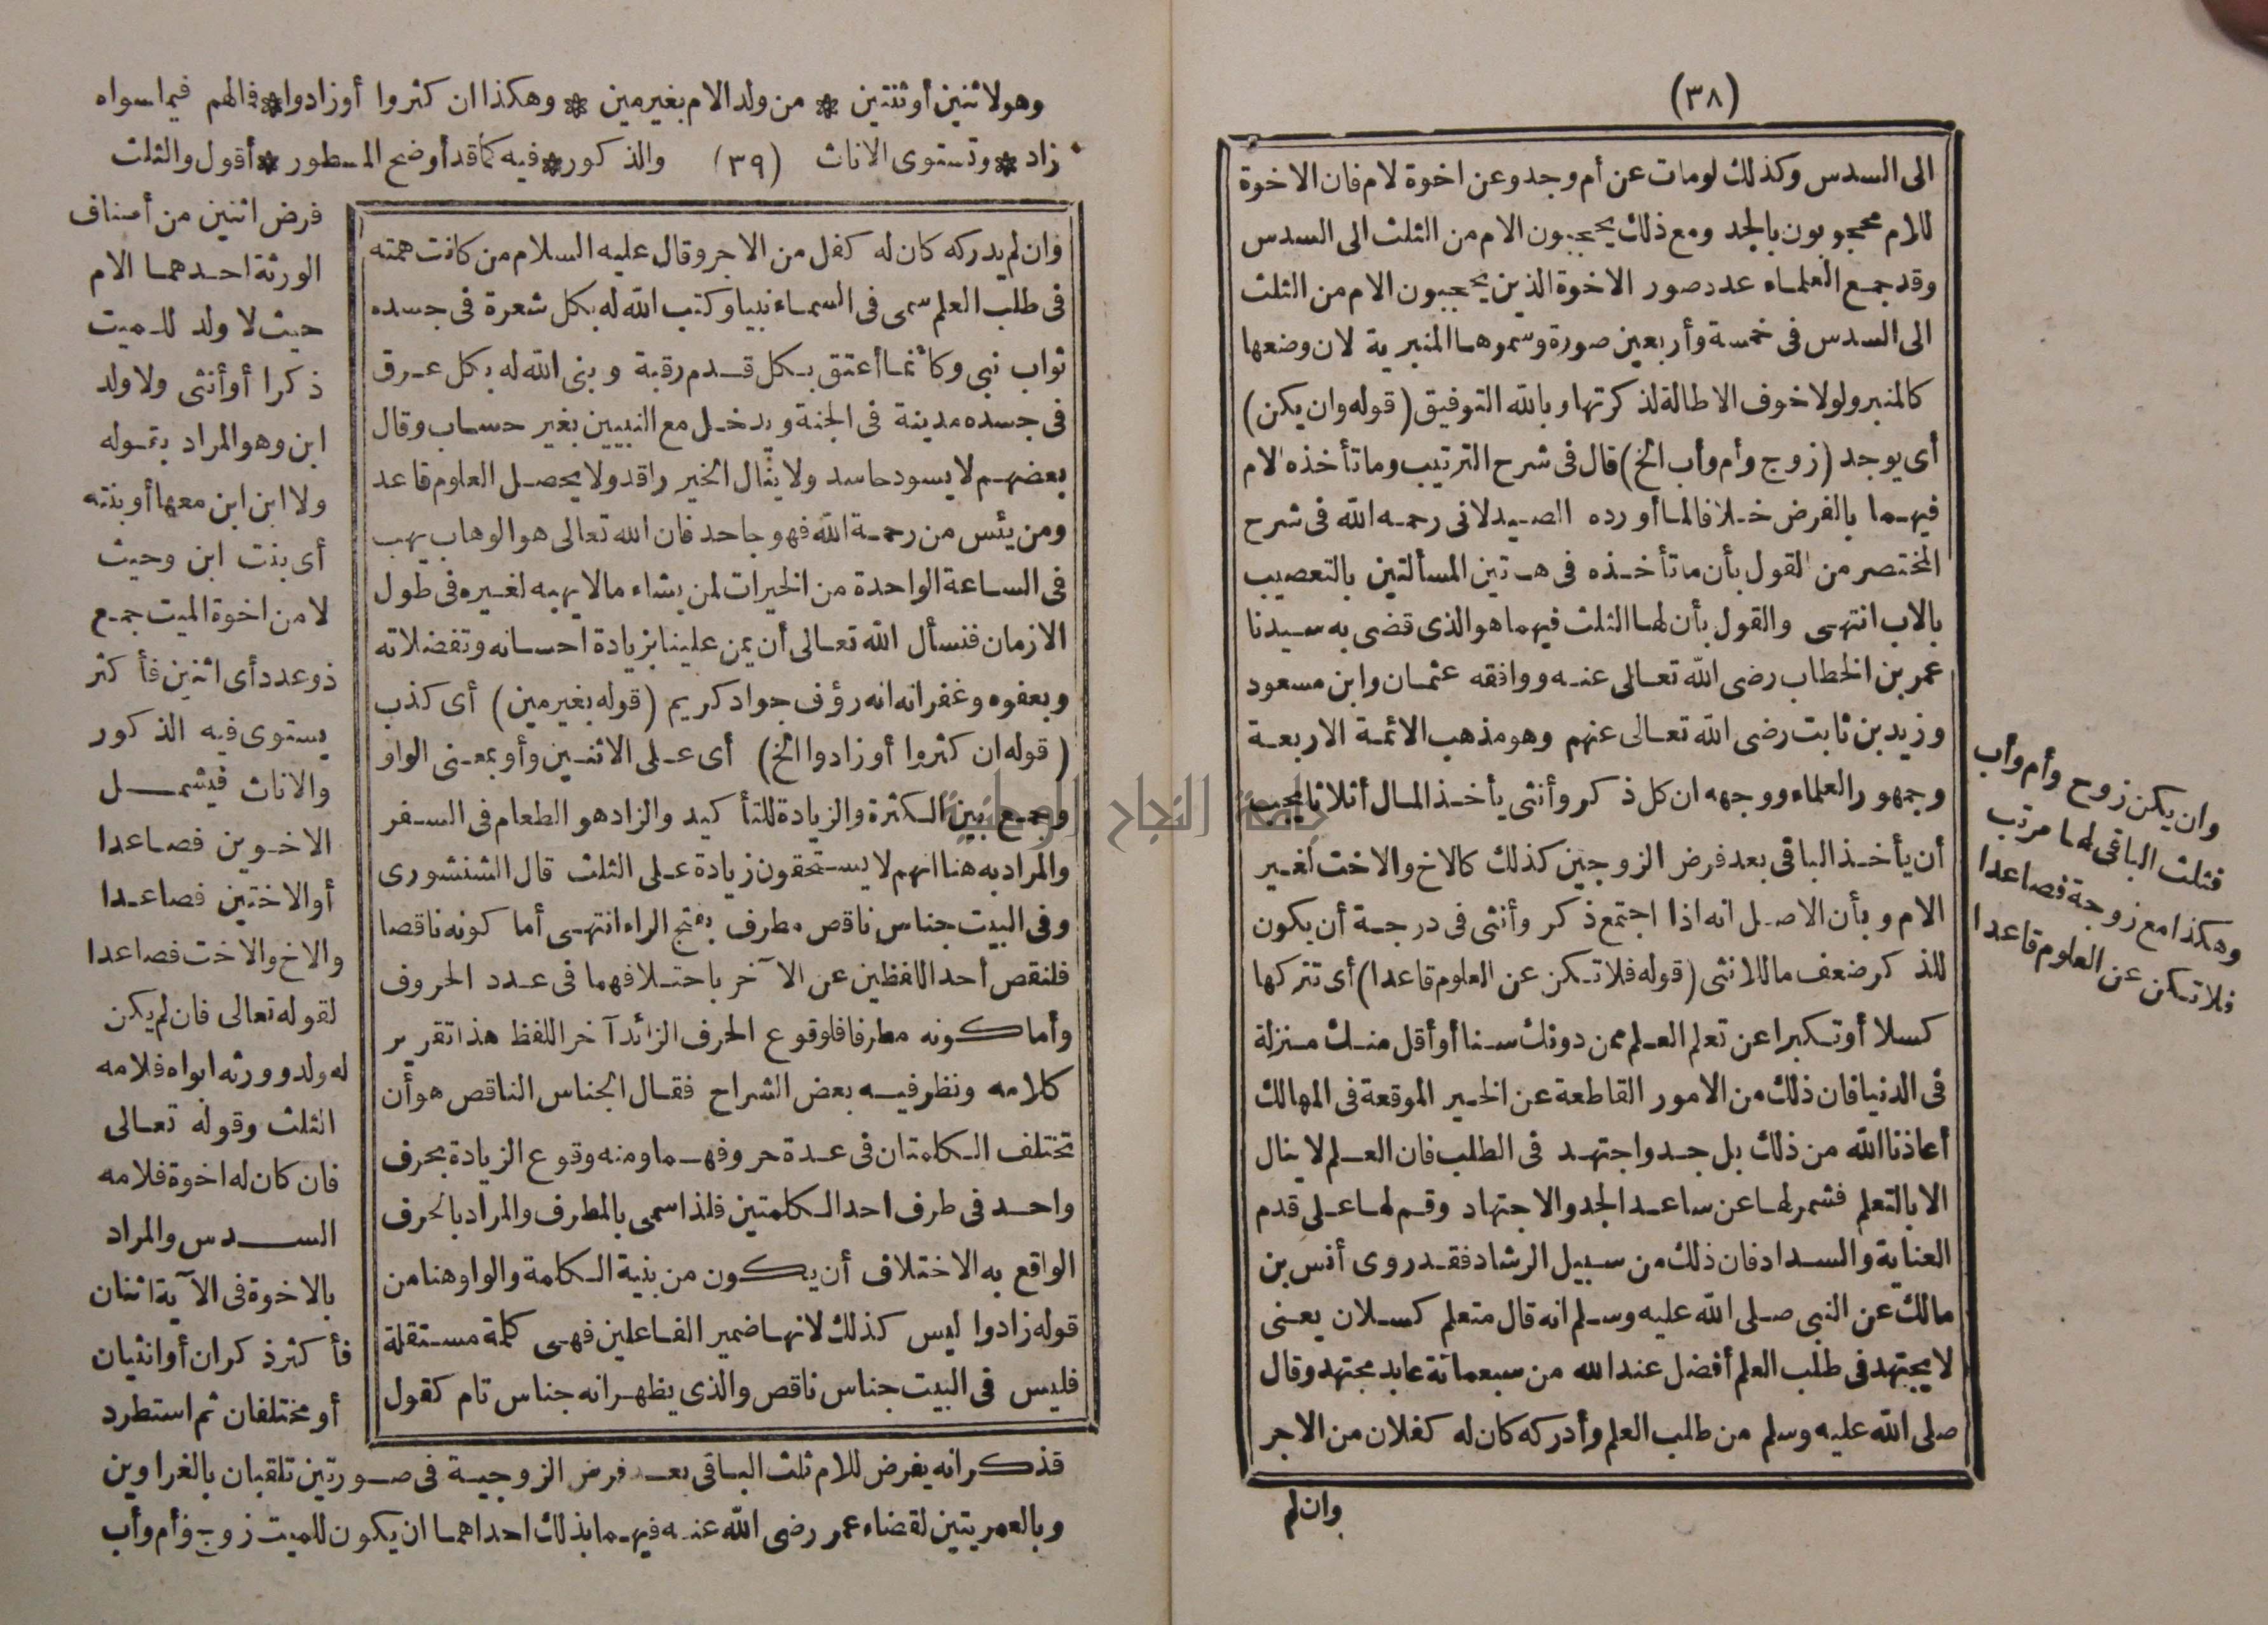 (٣٨)
الى السدس وكذلك لومات عن أم وجد وعن اخوة لام فان الاخوة
للام محجوبون بالجد ومع ذلك يحجبون الام من الثلث الى السدس
وقد جمع العلماء عدد صور الاخوة الذين يحجبون الام من الثلث
الى السدس فى خمسة وأربعين صورة وسموها المنبرية لان وضعها
كالمنبر ولولا خوف الاطالة لذكرتها وبالله التوفيق (قوله وان يكن)
أى يوجد (زوج وأم وأب الخ) قال فى شرح الترتيب وما تأخذه الام
فيهما بالفرض خلافا لما أورده الصيدلانى رحمه الله فى شرح
المختصر من القول بأن ما تأخذه فى هتين المسألتين بالتعصيب
بالاب انتهى والقول بأن لها الثلث فيهما هو الذى قضى به سيدنا
عمر بن الخطاب رضى الله تعالى عنه ووافقه عثمان وابن مسعود
وزيد بن ثابت رضى الله تعالى عنهم وهو مذهب الائمة الاربعة
وجمهور العلماء ووجهه ان كل ذكر وأنثى يأخذ المال أثلاثا يجب
أن يأخذ الباقى بعد فرض الزوجين كذلك كالاخ والاخت لغير
الام وبأن الاصل انه اذا اجتمع ذكر وأنثى فى درجة أن يكون
للذكر ضعف ما للانثى (قوله فلا تكن عن العلوم قاعدا) أى تتركها
كسلا أوتكبرا عن تعلم العلم ممن دونك سنا أو أقل منك منزلة
فى الدنيا فان ذلك من الامور القاطعة عن الخير الموقعة فى المهالك
أعاذنا الله من ذلك بل جد واجتهد فى الطلب فان العلم لا ينال
الا بالتعلم فشمر لها عن ساعد الجد والاجتهاد وقم لها على قدم
العناية والسداد فان ذلك من سبيل الرشاد فقد روى أنس بن
مالك عن النبى صلى الله عليه وسلم انه قال متعلم كسلان يعنى
لا يجتهد فى طلب العلم أفضل عند الله من سبعمائة عابد مجتهد وقال
صلى الله عليه وسلم من طلب العلم وأدركه كان له كفلان من الاجر
وان لم
وان يكن زوج وأم وأب
فثلث الباقى لها مرتب
وهكذا مع زوجة فصاعدا
فلا تكن عن العلوم قاعدا
وهو لاثنين أو ثنتين * من ولد الام بغير مين * وهكذا ان كثروا أو زادوا * فمالهم فيما سواه
زاد * وتستوى الاناث (٣٩) والذكور * فيه كما قد أوضح المسطور * أقول والثلث
وان لم يدركه كان له كفل من الاجر وقال عليه السلام من كانت همته
فى طلب العلم سمى فى السماء نبيا وكتب الله له بكل شعرة فى جسده
ثواب نبى وكأنما أعتق بكل قدم رقبة وبنى الله له بكل عرق
فى جسده مدينة فى الجنة ويدخل مع النبيين بغير حساب وقال
بعضهم لا يسود حاسد ولا ينال الخير راقد ولا يحصل العلوم قاعد
ومن يئس من رحمة الله فهو جاحد فان الله تعالى هو الوهاب يهب
فى الساعة الواحدة من الخيرات لمن يشاء مالا يهبه لغيره فى طول
الازمان فنسأل الله تعالى أن يمن علينا بزيادة احسانه وتفضلاته
وبعفوه وغفرانه انه رؤف جواد كريم (قوله بغير مين) أى كذب
(قوله ان كثروا أو زادوا الخ) أى على الاثنين وأو بمعنى الواو
وجمع بين الكثرة والزيادة للتأكيد والزاد هو الطعام فى السفر
والمراد به هنا انهم لا يستحقون زيادة على الثلث قال الشنشورى
وفى البيت جناس ناقص مطرف بفتح الراء انتهى أما كونه ناقصا
فلنقص أحد اللفظين عن الآخر باختلافهما فى عدد الحروف
وأما كونه مطرفا فلوقوع الحرف الزائد آخر اللفظ هذا تقرير
كلامه ونظر فيه بعض الشراح فقال الجناس الناقص هو أن
تختلف الكلمتان فى عدة حروفهما ومنه وقوع الزيادة بحرف
واحد فى طرف احد الكلمتين فلذا سمى بالمطرف والمراد بالحرف
الواقع به الاختلاف أن يكون من بنية الكلمة والواو هنا من
قوله زادوا ليس كذلك لانها ضمير الفاعلين فهى كلمة مستقلة
فليس فى البيت جناس ناقص والذى يظهر انه جناس تام كقول
فرض اثنين من أصناف
الورثة احدهما الام
حيث لا ولد للميت
ذكرا أو أنثى ولا ولد
ابن وهو المراد بقوله
ولا ابن ابن معها أو بنته
أى بنت ابن وحيث
لا من اخوة الميت جمع
ذو عدد أى اثنين فأكثر
يستوى فيه الذكور
والاناث فيشمل
الاخوين فصاعدا
أو الاختين فصاعدا
والاخ والاخت فصاعدا
لقوله تعالى فان لم يكن
له ولد وورثه ابواه فلامه
الثلث وقوله تعالى
فان كان له اخوة فلامه
السدس والمراد
بالاخوة فى الآية اثنان
فأكثر ذكران أو انثيان
أو مختلفان ثم استطرد
فذكر انه يفرض للام ثلث الباقى بعد فرض الزوجية فى صورتين تلقبان بالغراوين
وبالعمريتين لقضاء عمر رضى الله عنه فيهما بذلك احداهما ان يكون للميت زوج وأم وأب
جامعة النجاح الوطنية